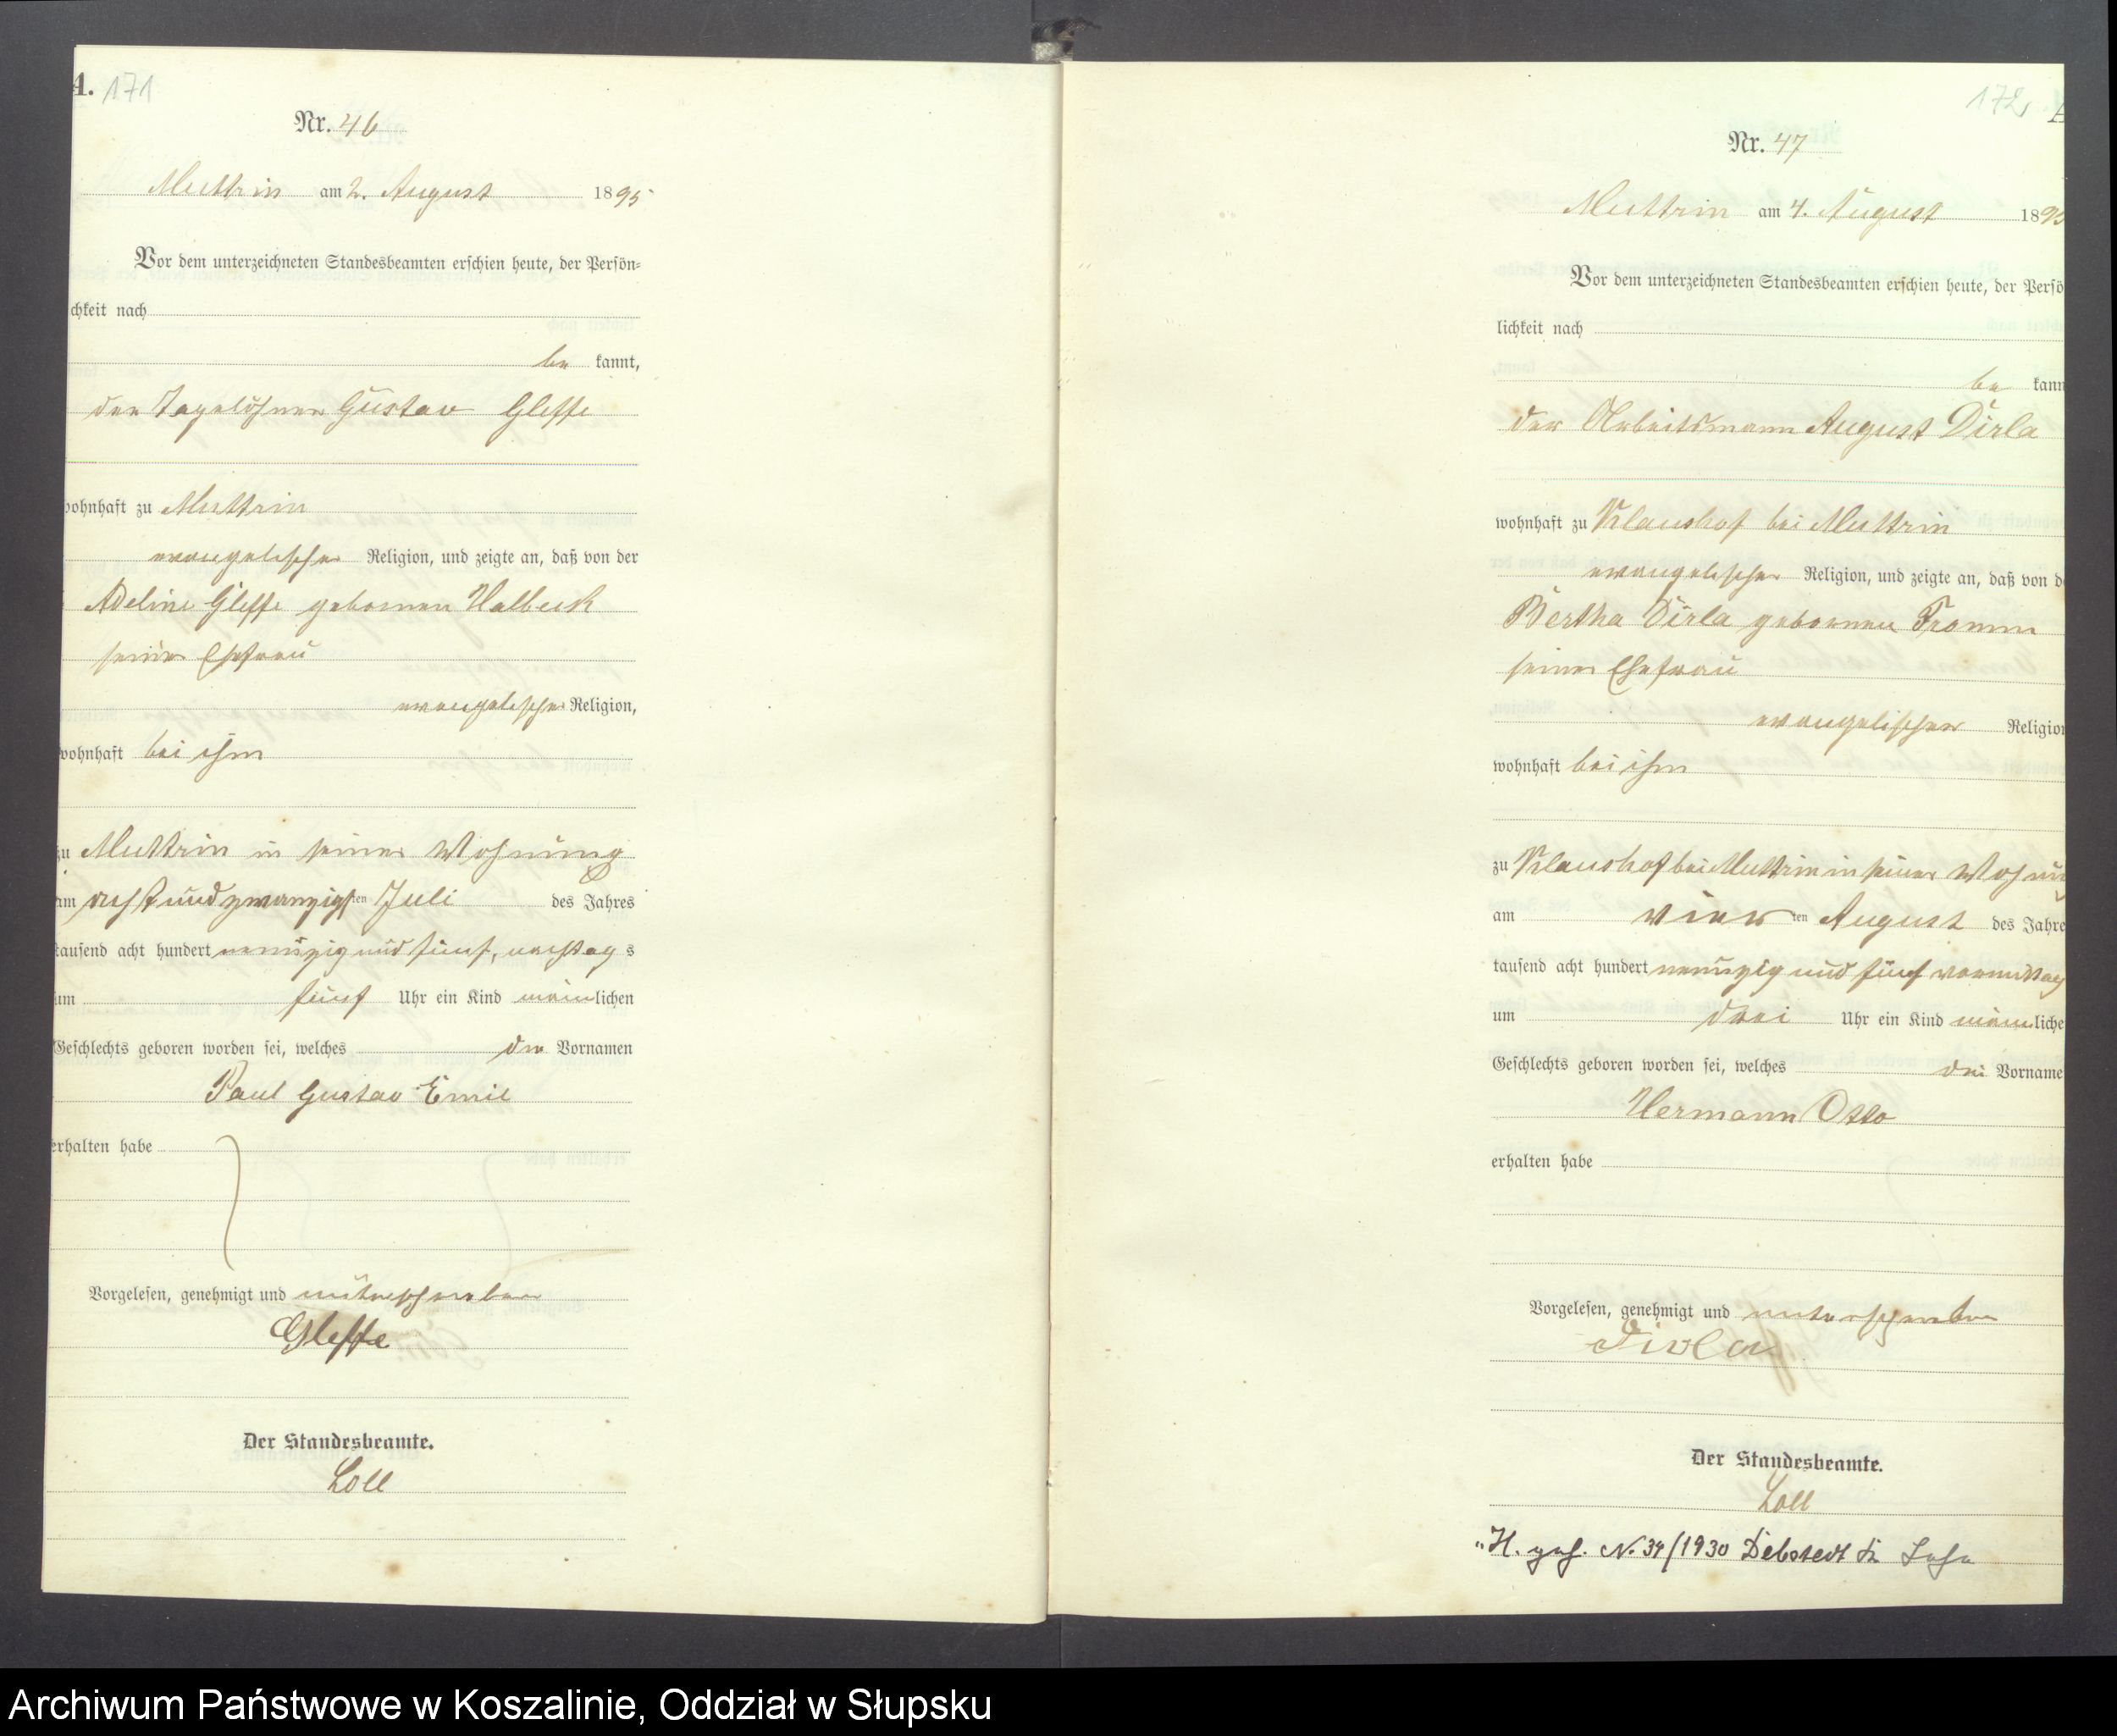 A. 171
Nr. 46
Muttrin am 2. August 1895
Vor dem unterzeichneten Standesbeamten erschien heute, der Persön-
chkeit nach
be kannt,
der Tagelöhner Gustav Gleffe
wohnhaft zu Muttrin
evangelischer Religion, und zeigte an, daß von der
Adeline Gleffe geborenen Halbeck
seiner Ehefrau
evangelischer Religion,
wohnhaft bei ihm
zu Muttrin in seiner Wohnung
am achtundzwanzigsten Juli des Jahres
tausend acht hundert neunzig und fünf, nachtags
um fünf Uhr ein Kind männlichen
Geschlechts geboren worden sei, welches die Vornamen
Paul Gustav Emil
erhalten habe
Vorgelesen, genehmigt und unterschrieben
Gleffe
Der Standesbeamte.
Loll
172
Nr. 47
Muttrin am 4. August 189
Vor dem unterzeichneten Standesbeamten erschien heute, der Persö
lichkeit nach
be kann
der Arbeitsmann August Dirla
wohnhaft zu Klaushof bei Muttrin
evangelischer Religion, und zeigte an, daß von d
Bertha Dirla geborenen Fromm
seiner Ehefrau
evangelischer Religion
wohnhaft bei ihm
zu Klaushof bei Muttrin in seiner Wohnung
am vierten August des Jahre
tausend acht hundert neunzig und fünf vormittag
um drei Uhr ein Kind männliche
Geschlechts geboren worden sei, welches die Vorname
Hermann Otto
erhalten habe
Vorgelesen, genehmigt und unterschrieben
Dirla
Der Standesbeamte.
Loll
"H. geh. N. 34/1930 Debstedt
Archiwum Państwowe w Koszalinie, Oddział w Słupsku